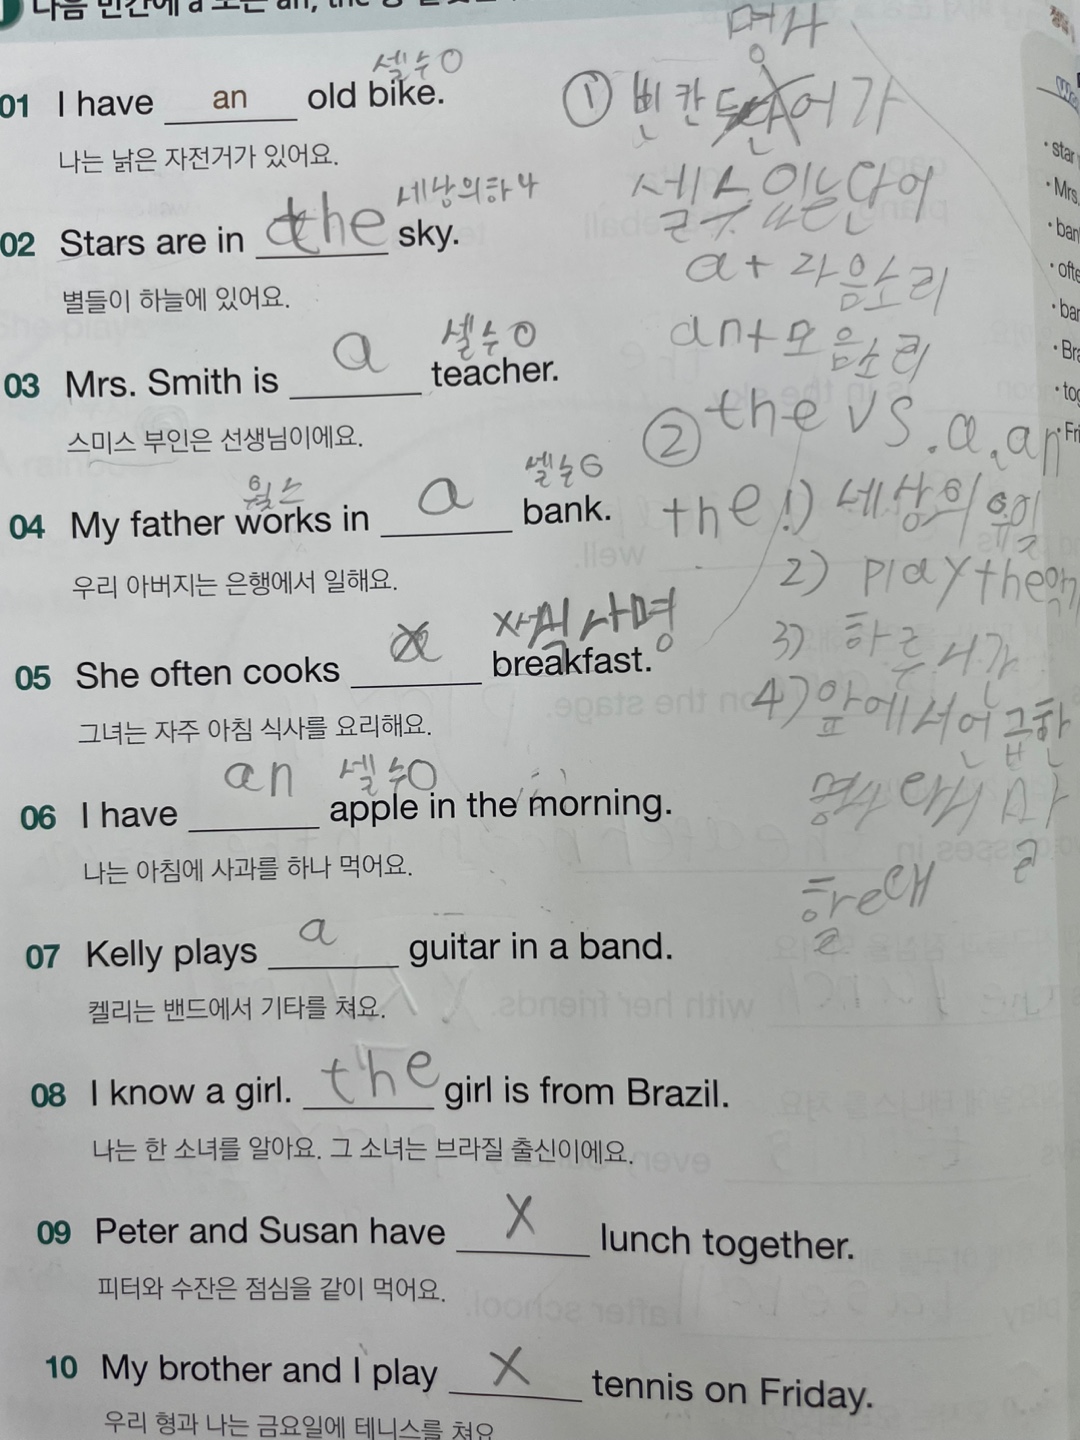 명사
셀수O
01 I have an old bike.
① 빈칸 뒤 단어가
나는 낡은 자전거가 있어요.
셀수있는단어
세상의하나
02 Stars are in the sky.
a+ 자음소리
별들이 하늘에 있어요.
an+모음소리
a 셀수O
03 Mrs. Smith is teacher.
② the vs. a, an
스미스 부인은 선생님이에요.
월스 a 셀수O
04 My father works in bank.
the 1) 세상의 유일
우리 아버지는 은행에서 일해요.
2) play the 악기
3) 하루 시간
X 식사명
05 She often cooks breakfast.
4) 앞에서 언급한
그녀는 자주 아침 식사를 요리해요.
an 셀수O
06 I have apple in the morning.
명사 다시 말
나는 아침에 사과를 하나 먹어요.
할 때
a
07 Kelly plays guitar in a band.
켈리는 밴드에서 기타를 쳐요.
08 I know a girl. the girl is from Brazil.
나는 한 소녀를 알아요. 그 소녀는 브라질 출신이에요.
09 Peter and Susan have X lunch together.
피터와 수잔은 점심을 같이 먹어요.
10 My brother and I play X tennis on Friday.
우리 형과 나는 금요일에 테니스를 쳐요